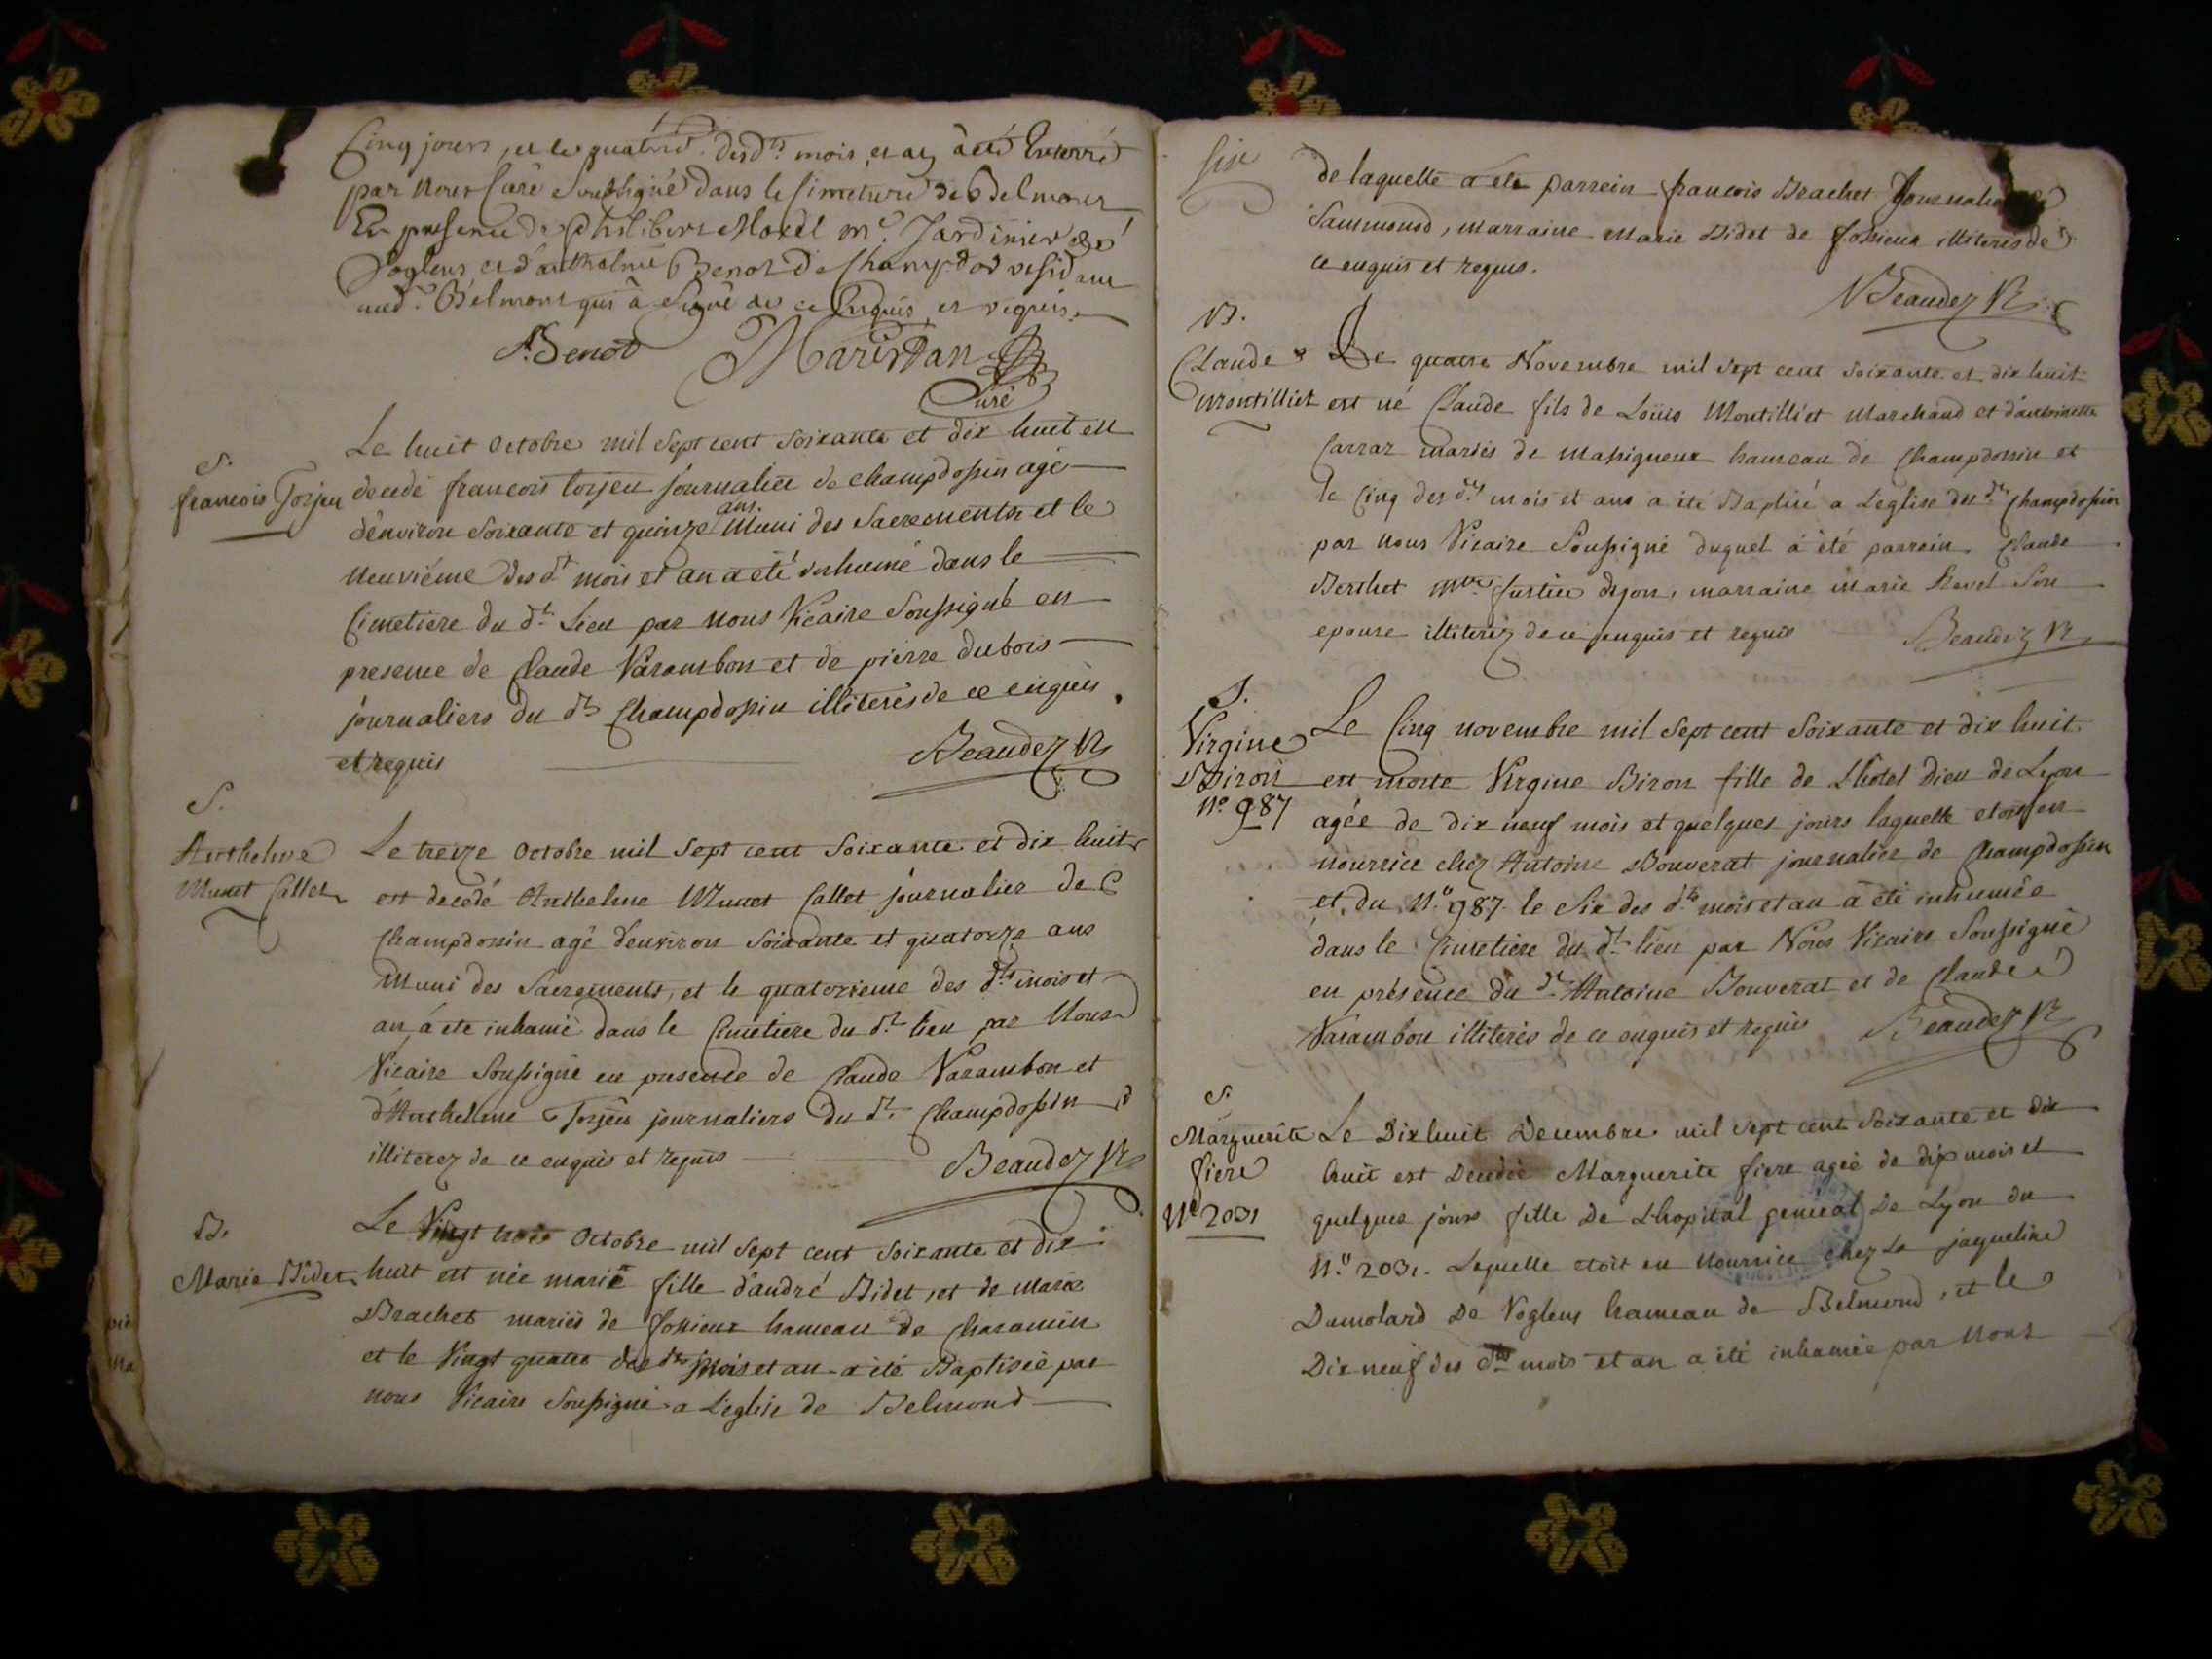 Cinq jours, et le quatrié desdts mois, et an a été Enterré
par Nous Curé Soussigné dans le Simetiere de Belmont
En presence de Philibert Morel me Jardinier de
Voglens et d'anthelme Benot de Champdor resident
aud. Belmont qui a Signé de ce Enquis, et requis.
A. Benot
Curé
S.
françois Torjeu
Le huit Octobre mil Sept cent Soixante et dix huit est
decedé françois torjeu journalier de champdossin agé
d'environ Soixante et quinze ans. Muni des Sacrements et le
Neuviéme des dt mois et an a été inhumé dans le
Cimetiere du dt Lieu par nous Vicaire Soussigné en
presence de Claude Varambon et de pierre dubois
journaliers du dt Champdossin illiterés de ce enquis
et requis
Beaudez Vre
S.
Anthelme
Munet Callet
Le treize Octobre mil Sept cent Soixante et dix huit
est decedé Anthelme Munet Callet journalier de
Champdossin agé d'environ Soixante et quatorze ans
Muni des Sacrements, et le quatorzieme des dts mois et
an, a ete inhumé dans le Cimetiere du dt lieu par Nous
Vicaire Soussigné en presence de Claude Varambon et
d'Anthelme Torjeu journaliers du dt Champdossin
illiterez de ce enquis et requis
Beaudez Vre
B.
Marie Bidet
Le Vingt trois Octobre mil Sept cent Soixante et dix
huit est née marie fille d'andré Bidet, et de marie
Brachet mariés de fossieux hameau de Charamin
et le Vingt quatre des dts mois et an a été Baptisée par
nous Vicaire Soussigné a L'eglise de Belmond
Six
de laquelle a été parrein francois Brachet Journalier
Sammonod, marraine Marie Bidet de fossieux illiterés de
ce enquis et requis.
Beaudez Vre
B.
Claude
Montilliet
Le quatre Novembre mil sept cent soixante et dix huit
est né Claude fils de Loüis Montilliet Marchand et d'antoinette
Carraz mariés de Massigneux hameau de Champdossin et
le Cinq des dts mois et ans a été Baptisé a L'eglise du dt Champdossin
par nous Vicaire Soussigné duquel a été parrein Claude
Berthet marraine Marie Revel Son
epouse illiterez de ce enquis et requis
Beaudez Vre
S.
Virgine
Biron
N.o 987
Le Cinq novembre mil Sept cent Soixante et dix huit
est morte Virgine Biron fille de L'hotel Dieu de Lyon
agée de dix neuf mois et quelques jours laquelle etoit en
nourrice chez Antoine Bouverat journalier de Champdossin
et du N.o 987. le Six des dts mois et an a été inhumée
dans le Cimetiere du dt lieu par Nous Vicaire Soussigné
en présence du dt Antoine Bouverat et de Claude
Varambon illiterés de ce enquis et requis
Beaudez Vre
S.
Marguerite
fiere
No 2031
Le Dixhuit Decembre mil sept cent Soixante et dix
huit est Decedée Marguerite fiere agée de mois et
quelques jours fille De L'hopital general De Lyon du
N.o 2031. Laquelle etoit en Nourrice chez La jaqueline
Dumolard De Voglens hameau de Belmond, et le
Dix neuf des dts mois et an a été inhumée par Nous